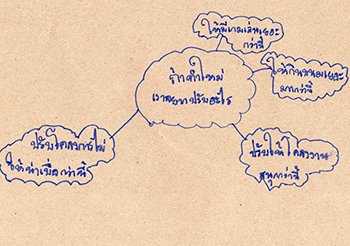 ให้มีเกมเล่นเยอะ
กว่านี้
ถ้าทำใหม่
เราอยากปรับอะไร
ให้กินขนมเยอะ
มากกว่านี้
ปรับโครงการไม่
ให้น่าเบื่อกว่านี้
ปรับให้
สนุกกว่านี้